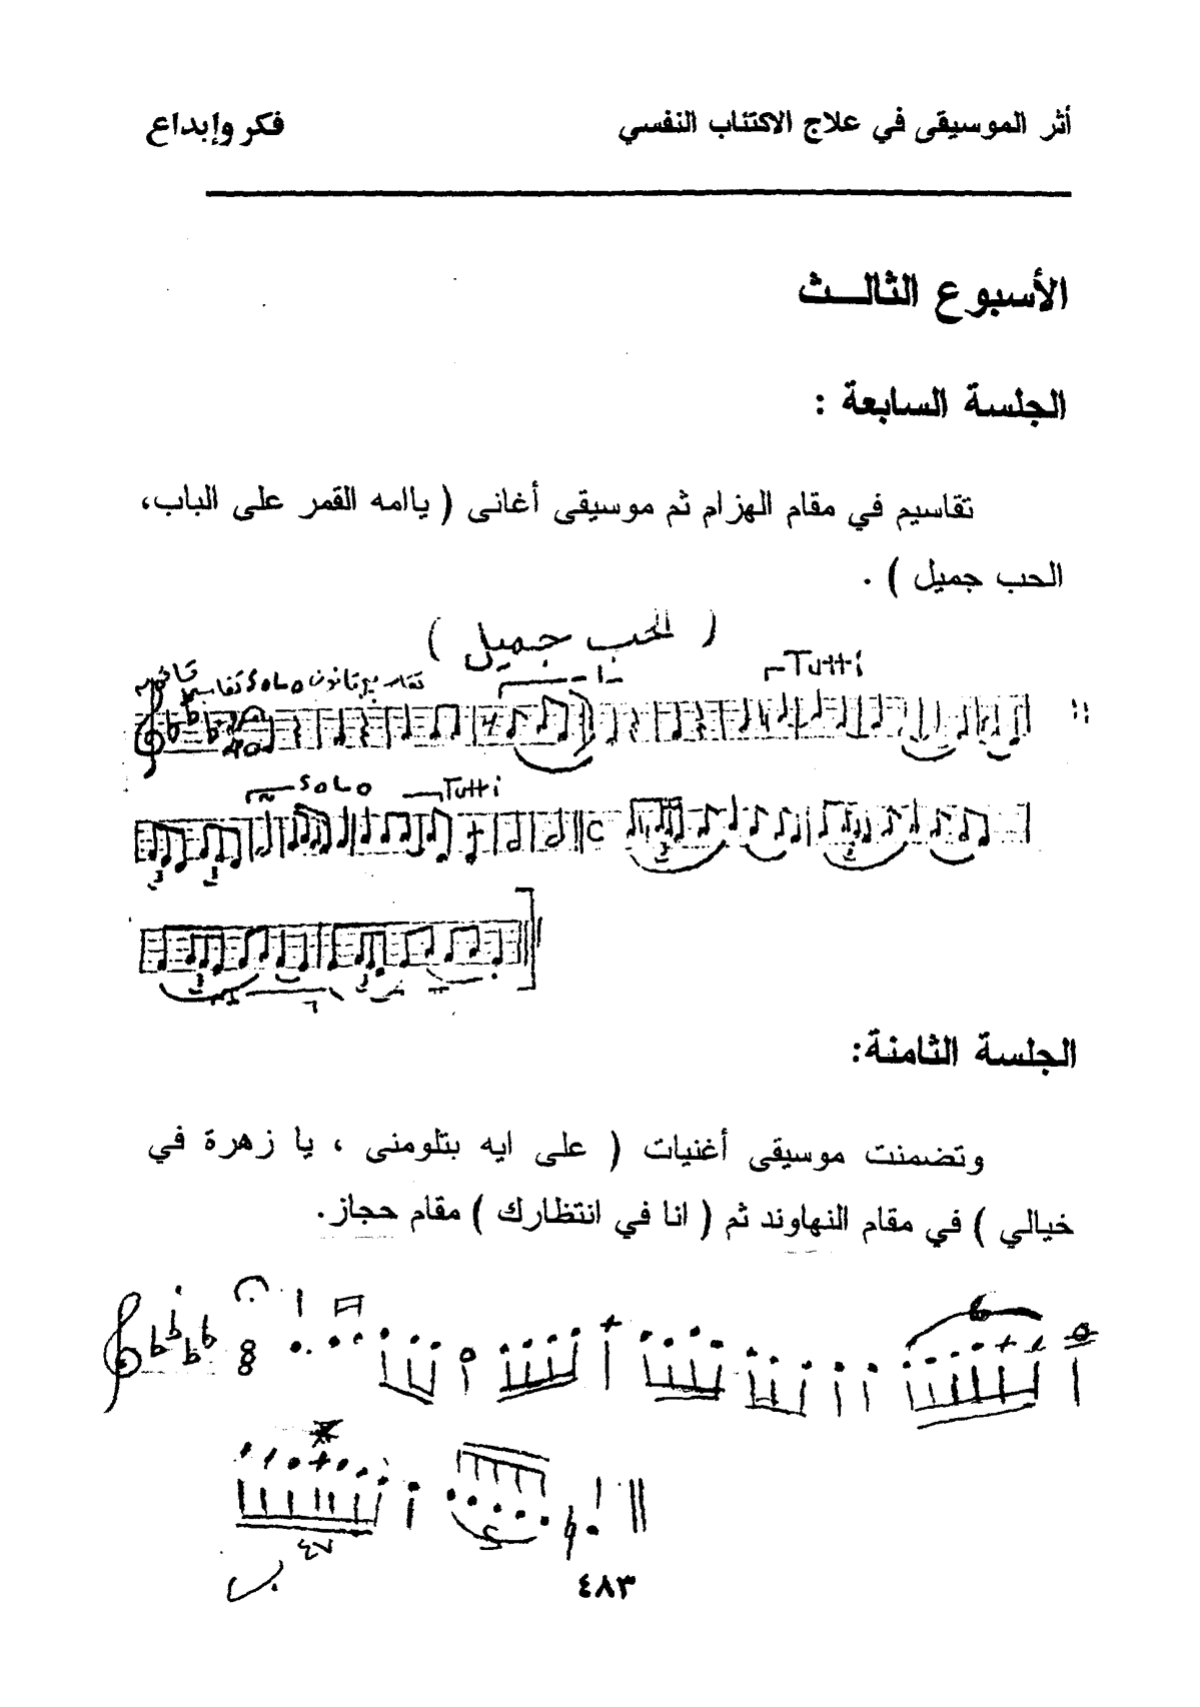 أثر الموسيقى في علاج الاكتئاب النفسي
فكر وإبداع
الأسبوع الثالـــث
الجلسة السابعة :
تقاسيم في مقام الهزام ثم موسيقى أغانى ( ياامه القمر على الباب،
الحب جميل ) .
( الحب جميل )
Tutti
قانون SOLO تقاسيم
SOLO Tutti
C
3 3 3
3 3
الجلسة الثامنة:
وتضمنت موسيقى أغنيات ( على ايه بتلومنى ، يا زهرة في
خيالي ) في مقام النهاوند ثم ( انا في انتظارك ) مقام حجاز.
6
٤٨٣